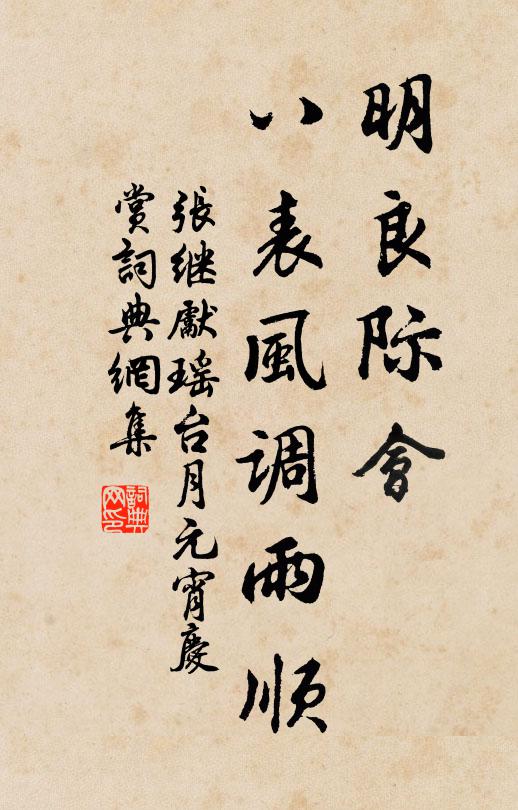 明良际會
八表風调雨順
張继獻瑶台月元宵慶
賞詞典網集
詞典网印